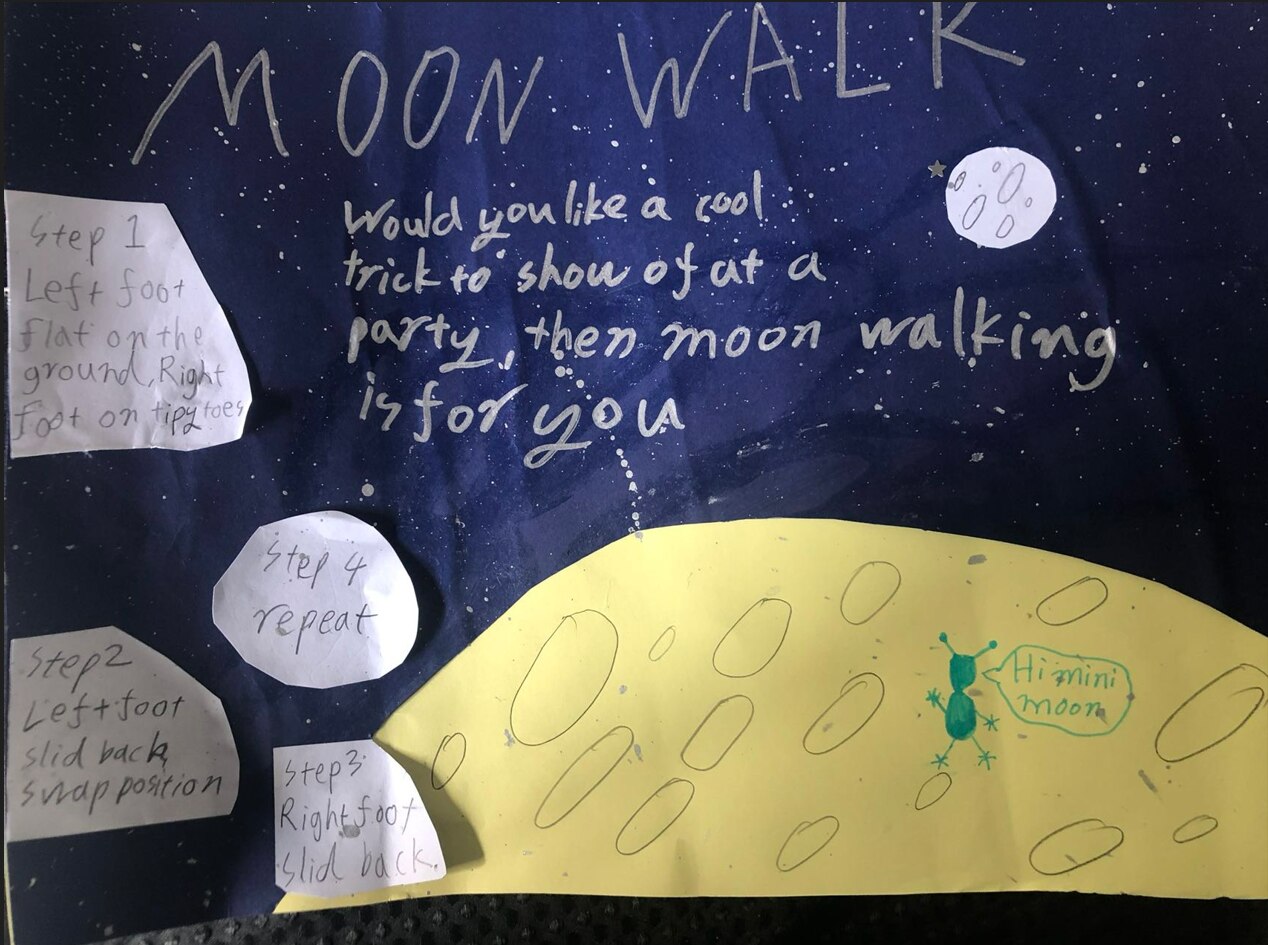 MOON WALK
Would you like a cool
trick to show of at a
party, then moon walking
is for you
Step 1
Left foot
flat on the
ground, Right
foot on tipy toes
Step 2
Left foot
slid back,
swap position
Step 3
Right foot
slid back.
Step 4
repeat
Hi mini
moon